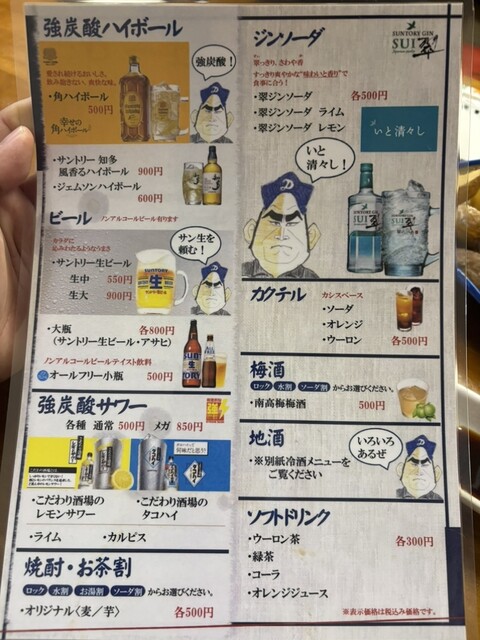 強炭酸ハイボール
愛され続けるおいしさ。
飲み飽きない、爽快な味。
・角ハイボール
500円
幸せの
角ハイボール
強炭酸!
・サントリー 知多
風香るハイボール 900円
・ジェムソンハイボール
600円
ビール ノンアルコールビール有ります
カラダに
沁みわたるようなうまさ
・サントリー生ビール
生中 550円
生大 900円
SUNTORY
生
サン生を
頼む!
・大瓶 各800円
(サントリー生ビール・アサヒ)
ノンアルコールビールテイスト飲料
オールフリー小瓶 500円
強炭酸サワー
各種 通常 500円 メガ 850円
・こだわり酒場の
レモンサワー
・こだわり酒場の
タコハイ
・ライム ・カルピス
焼酎・お茶割
ロック 水割 お湯割 ソーダ割 からお選びください。
・オリジナル〈麦/芋〉 各500円
ジンソーダ
SUNTORY GIN
SUI 翠
翠っきり、さわや香
すっきり爽やかな"味わいと香り"で
食事に合う!
・翠ジンソーダ 各500円
・翠ジンソーダ ライム
・翠ジンソーダ レモン
いと清々し
いと
清々し!
SUNTORY GIN
SUI
翠
カクテル カシスベース
・ソーダ
・オレンジ
・ウーロン 各500円
梅酒
ロック 水割 ソーダ割 からお選びください。
・南高梅梅酒 500円
地酒
・※別紙冷酒メニューを
ご覧ください
いろいろ
あるぜ
ソフトドリンク
・ウーロン茶 各300円
・緑茶
・コーラ
・オレンジジュース
※表示価格は税込み価格です。